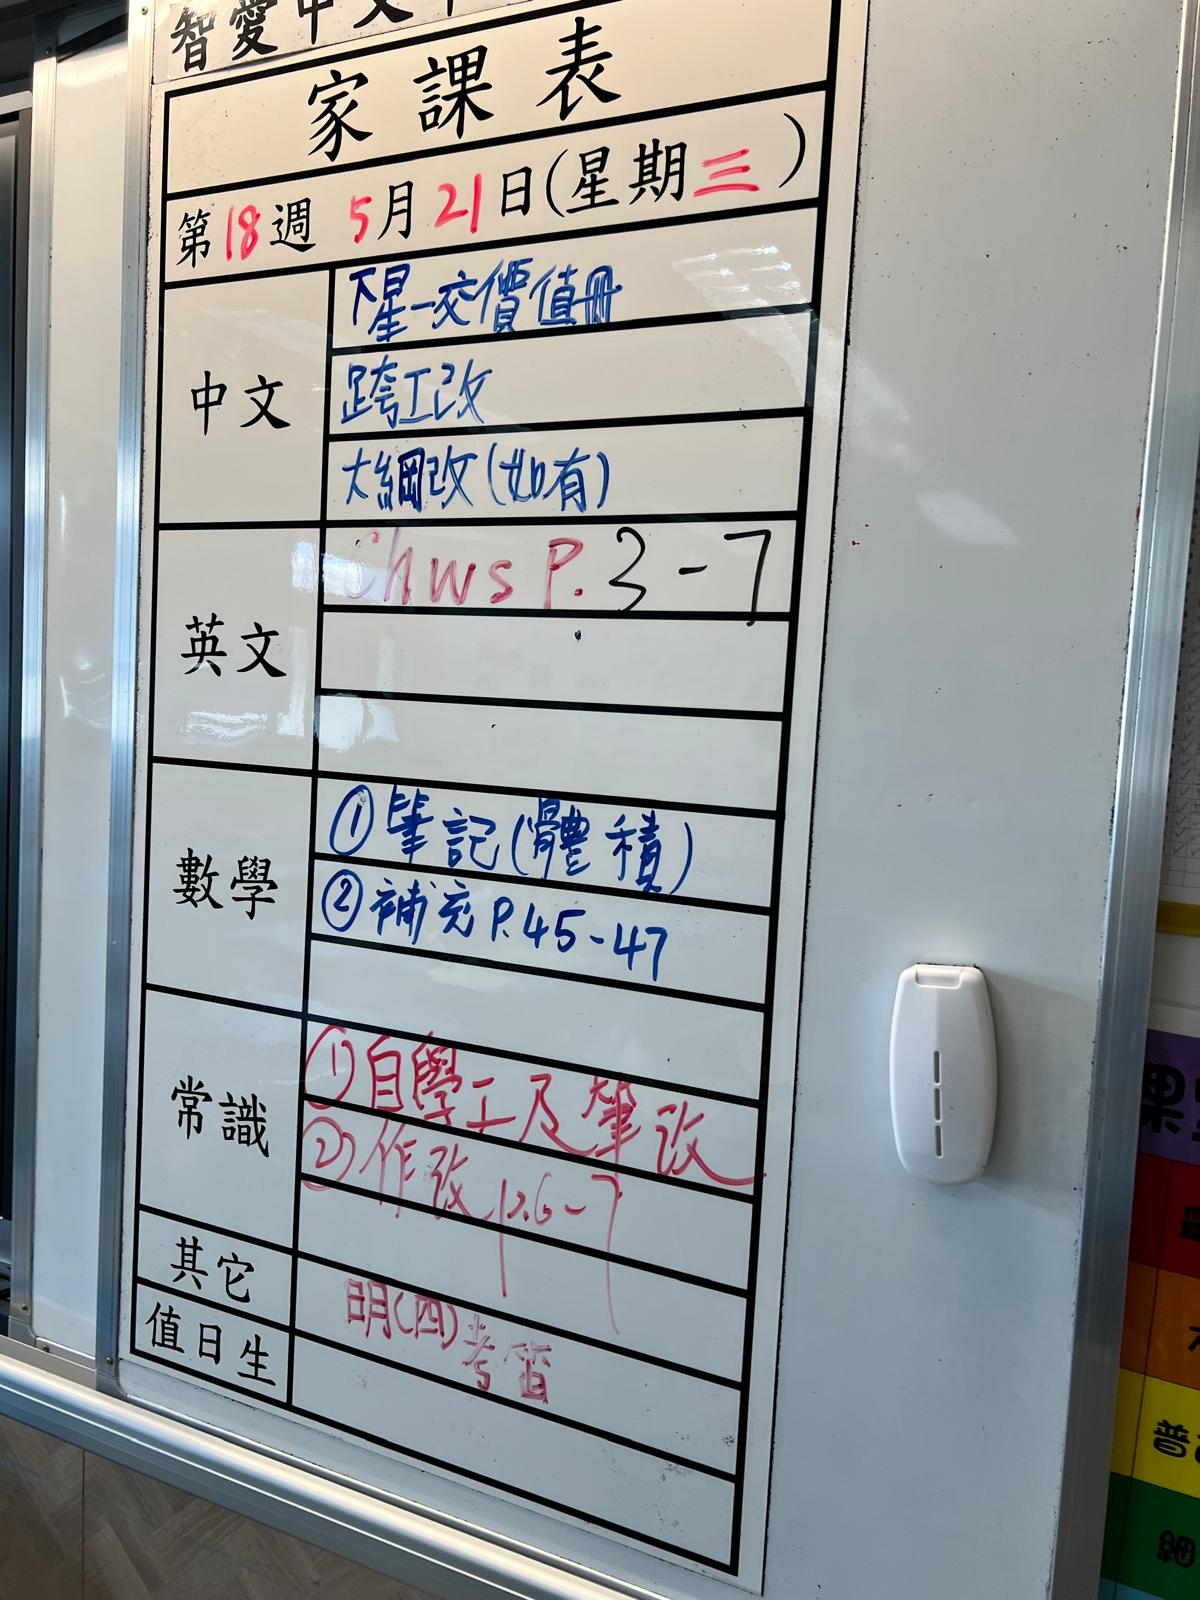 智愛中文
家課表
第18週 5月21日(星期三)
中文
下星一交價值冊
跨工改
大綱改(如有)
英文
Chws P. 3-7
數學
①筆記(體積)
②補充 P.45-47
常識
①自學工及筆改
②作改 p.6-7
其它
明(四)考笛
值日生
普
細